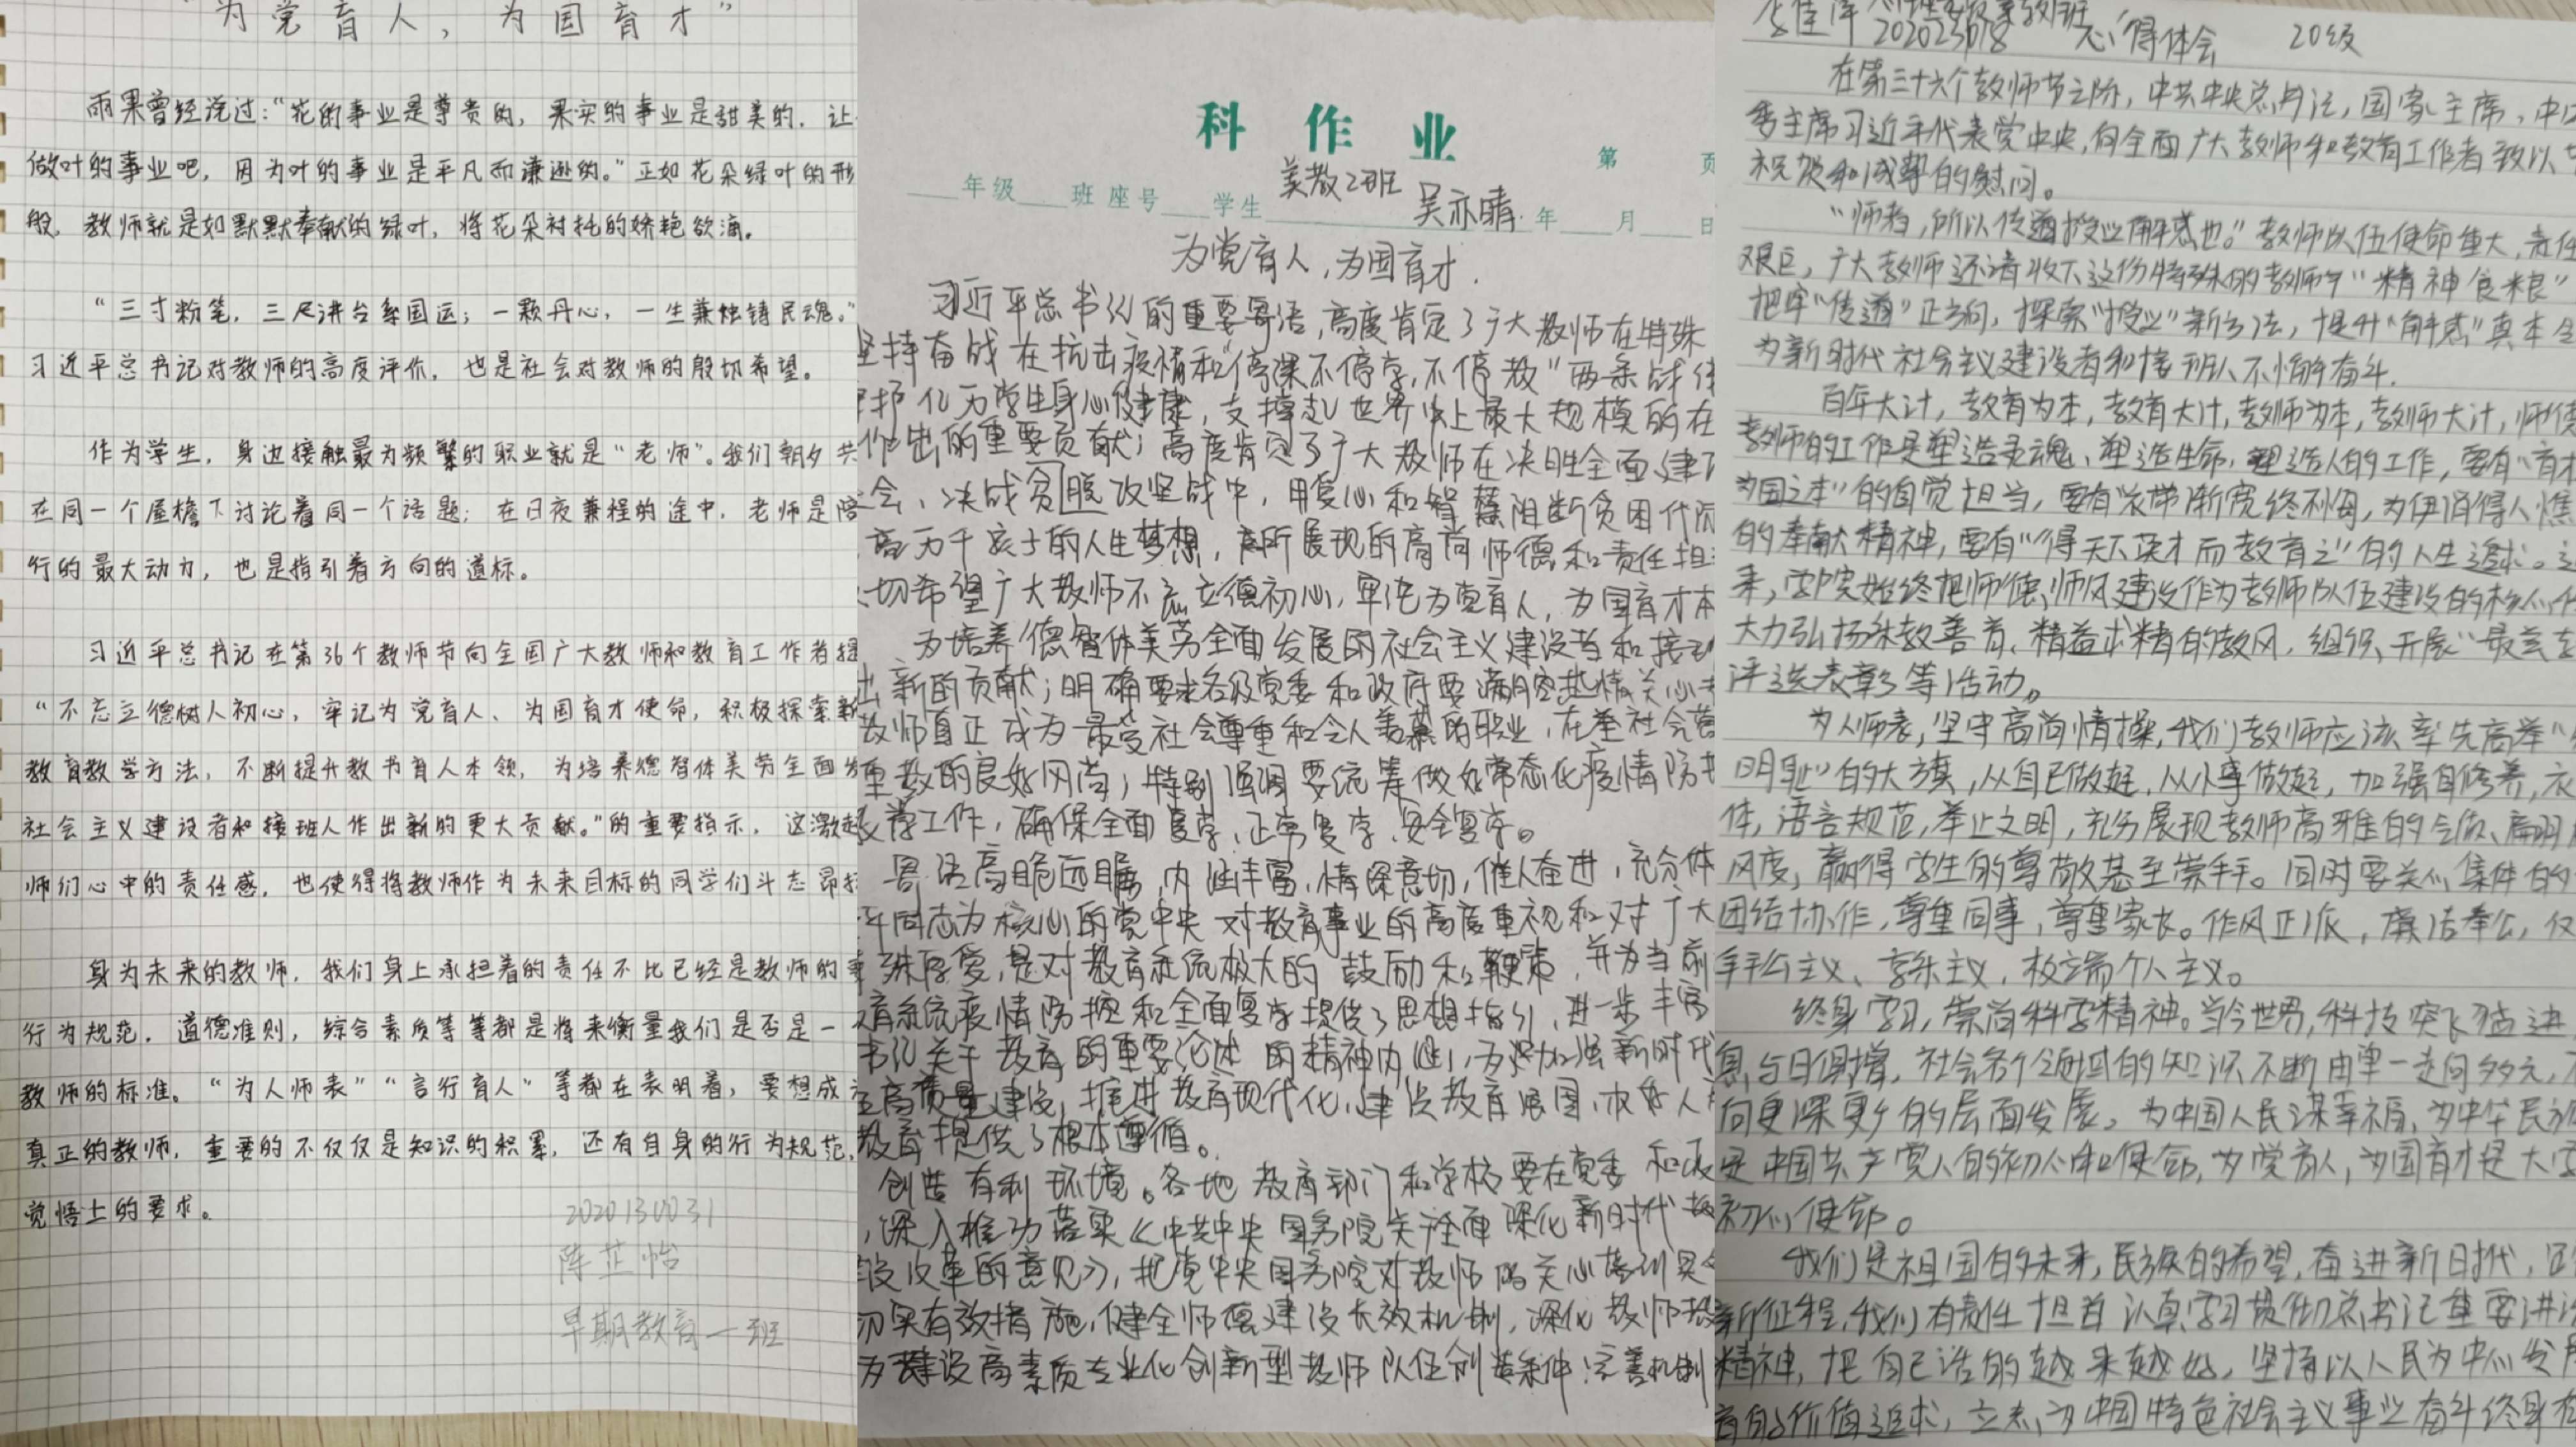 “为党育人，为国育才”
雨果曾经说过：“花的事业是尊贵的，果实的事业是甜美的，让
做叶的事业吧，因为叶的事业是平凡而谦逊的。”正如花朵绿叶的形
般，教师就是如默默奉献的绿叶，将花朵衬托的娇艳欲滴。
“三寸粉笔，三尺讲台系国运；一颗丹心，一生秉烛铸民魂。”
习近平总书记对教师的高度评价，也是社会对教师的殷切希望。
作为学生，身边接触最为频繁的职业就是“老师”。我们朝夕共
在同一个屋檐下讨论着同一个话题；在日夜兼程的途中，老师是陪
行的最大动力，也是指引着方向的道标。
习近平总书记在第36个教师节向全国广大教师和教育工作者提
“不忘立德树人初心，牢记为党育人、为国育才使命，积极探索新
教育教学方法，不断提升教书育人本领，为培养德智体美劳全面发
社会主义建设者和接班人作出新的更大贡献。”的重要指示，这激起
师们心中的责任感，也使得将教师作为未来目标的同学们斗志昂扬
身为未来的教师，我们身上承担着的责任不比已经是教师的
行为规范，道德准则，综合素质等等都是将来衡量我们是否是一
教师的标准。“为人师表”“言行育人”等都在表明着，要想成
真正的教师，重要的不仅仅是知识的积累，还有自身的行为规范，
觉悟上的要求。
2020130031
陈芷怡
早期教育一班
科作业
第 页
年级 班 座号 学生 美教2班 吴亦晴 年 月 日
为党育人，为国育才.
习近平总书记的重要寄语，高度肯定了广大教师在特殊
坚持奋战在抗击疫情和“停课不停学，不停教”两条战
守护亿万学生身心健康，支撑起世界史上最大规模的在
作出的重要贡献；高度肯定了广大教师在决胜全面建
会、决战贫脱攻坚战中，用爱心和智慧阻断贫困代际
高万千孩子的人生梦想，所展现的高尚师德和责任担
切希望广大教师不忘立德初心，牢记为党育人，为国育才
为培养德智体美劳全面发展的社会主义建设者和接班
出新的贡献；明确要求各级党委和政府要满腔热情关心
教师真正成为最受社会尊重和令人羡慕的职业，在全社会营
重教的良好风尚；特别强调要统筹做好常态化疫情防
教学工作，确保全面复学、正常复学、安全复学。
寄语高瞻远瞩，内涵丰富，情深意切，催人奋进，充分体
平同志为核心的党中央对教育事业的高度重视和对广大
殊厚爱，是对教育系统极大的鼓励和鞭策，并为当前
育系统疫情防控和全面复学提供了思想指引，进一步丰富
书记关于教育的重要论述的精神内涵，为加强新时代
高质量建设，推进教育现代化，建设教育强国，办好人
教育提供了根本遵循。
创造有利环境。各地教育部门和学校要在党委和政
，深入推动落实《中共中央国务院关于全面深化新时代教
设改革的意见》，把党中央国务院对教师的关心
切实有效措施，健全师德建设长效机制，深化教师
为建设高素质专业化创新型教师队伍创造条件！完善机制
202023018 心得体会 20级
在第三十六个教师节之际，中共中央总书记，国家主席，中
委主席习近平代表党中央，向全面广大教师和教育工作者致以
祝贺和诚挚的慰问。
“师者，所以传道授业解惑也。”教师队伍使命重大，责任
艰巨，广大教师还请收下这份特殊的教师节“精神食粮”
把牢“传道”正方向，探索“授业”新方法，提升“解惑”真本
为新时代社会主义建设者和接班人不懈奋斗.
百年大计，教育为本，教育大计，教师为本，教师大计，师德
教师的工作是塑造灵魂、塑造生命，塑造人的工作，要有“育才
为国之本”的自觉担当，要有“衣带渐宽终不悔，为伊消得人憔
的奉献精神，要有“得天下英才而教育之”的人生追求。
来，学院始终把师德师风建设作为教师队伍建设的核心
大力弘扬朱教善育、精益求精的教风，组织、开展“最美
评选表彰等活动。
为人师表，坚守高尚情操，我们教师应该率先高举“
明耻”的大旗，从自己做起，从小事做起，加强自修养，衣
体，语言规范，举止文明，充分展现教师高雅的气质、高明
风度，赢得学生的尊敬甚至崇拜。同时要关心集体的
团结协作，尊重同事，尊重家长。作风正派，廉洁奉公，
拜金主义、享乐主义，极端个人主义。
终身学习，崇尚科学精神。当今世界，科技突飞猛进
息与日俱增，社会各个领域的知识不断由单一走向多元，
向更深更广的层面发展。为中国人民谋幸福，为中华民族
是中国共产党人的初心和使命，为党育人，为国育才是大
初心使命。
我们是祖国的未来，民族的希望，奋进新时代，
新征程，我们有责任担当认真学习贯彻总书记重要讲
精神，把自己活的越来越好，坚持以人民为中心发
有的价值追求，立志为中国特色社会主义事业奋斗终身